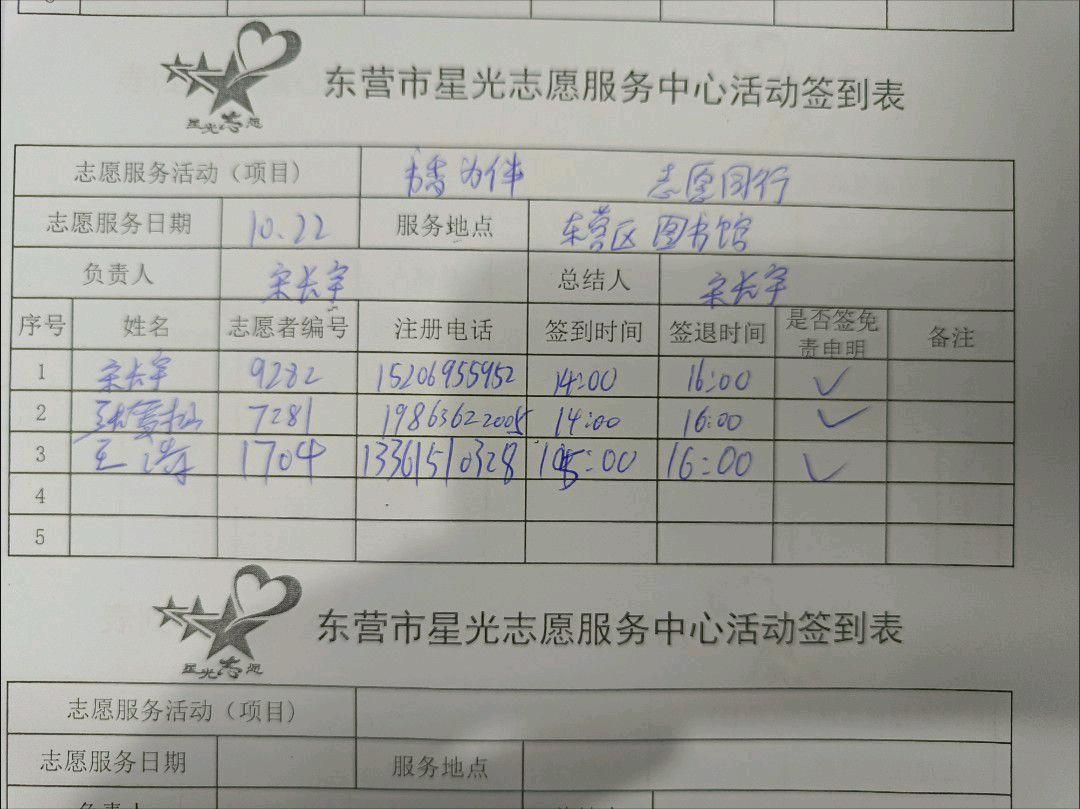 星光志愿
东营市星光志愿服务中心活动签到表
志愿服务活动（项目） 书香为伴 志愿同行
志愿服务日期 10.22 服务地点 东营区图书馆
负责人 宋长宇 总结人 宋长宇
序号 姓名 志愿者编号 注册电话 签到时间 签退时间 是否签免责申明 备注
1 宋长宇 9282 15206955952 14:00 16:00 ✓
2 7281 19863622005 14:00 16:00 ✓
3 王涛 1704 13361510328 15:00 16:00 ✓
4
5
星光志愿
东营市星光志愿服务中心活动签到表
志愿服务活动（项目）
志愿服务日期 服务地点
负责人